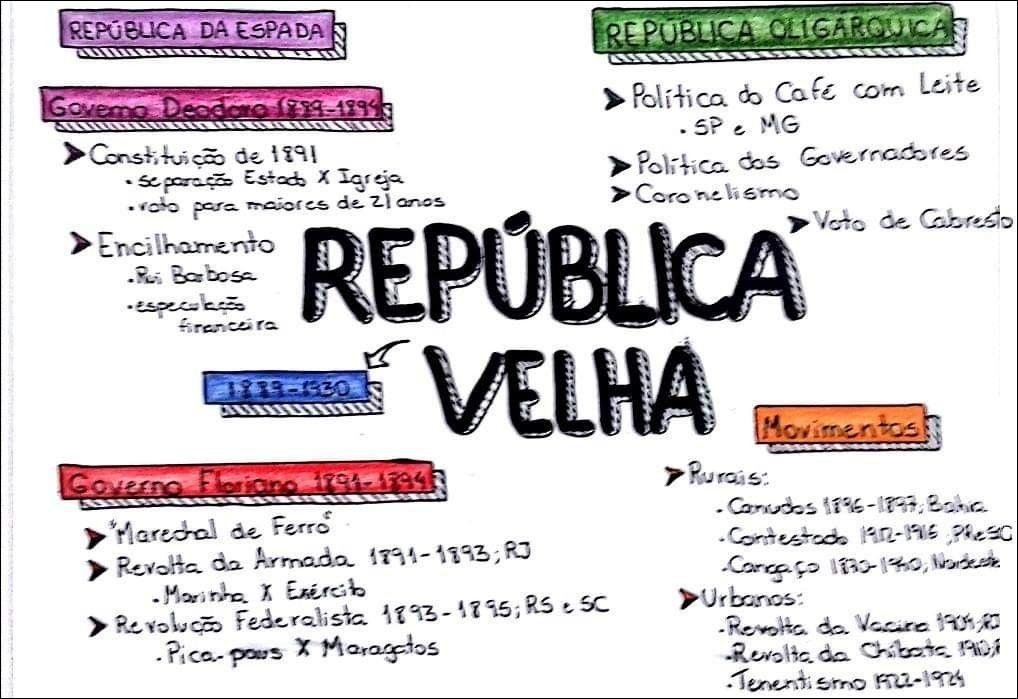 REPÚBLICA DA ESPADA
Governo Deodoro 1889-1891
➤Constituição de 1891
• separação Estado X Igreja
• voto para maiores de 21 anos
➤Encilhamento
• Rui Barbosa
• especulação
financeira
REPÚBLICA OLIGÁRQUICA
➤Política do Café com Leite
• SP e MG
➤Política dos Governadores
➤Coronelismo
➤Voto de Cabresto
REPÚBLICA
VELHA
1889-1930
Governo Floriano 1891-1894
➤"Marechal de Ferro"
➤Revolta da Armada 1891-1893; RJ
• Marinha X Exército
➤Revolução Federalista 1893-1895; RS e SC
• Pica-paus X Maragatos
Movimentos
➤Rurais:
• Canudos 1896-1897; Bahia
• Contestado 1912-1916; PR e SC
• Cangaço Nordeste
➤Urbanos:
• Revolta da Vacina 1904; RJ
• Revolta da Chibata 1910;
• Tenentismo 1922-1924